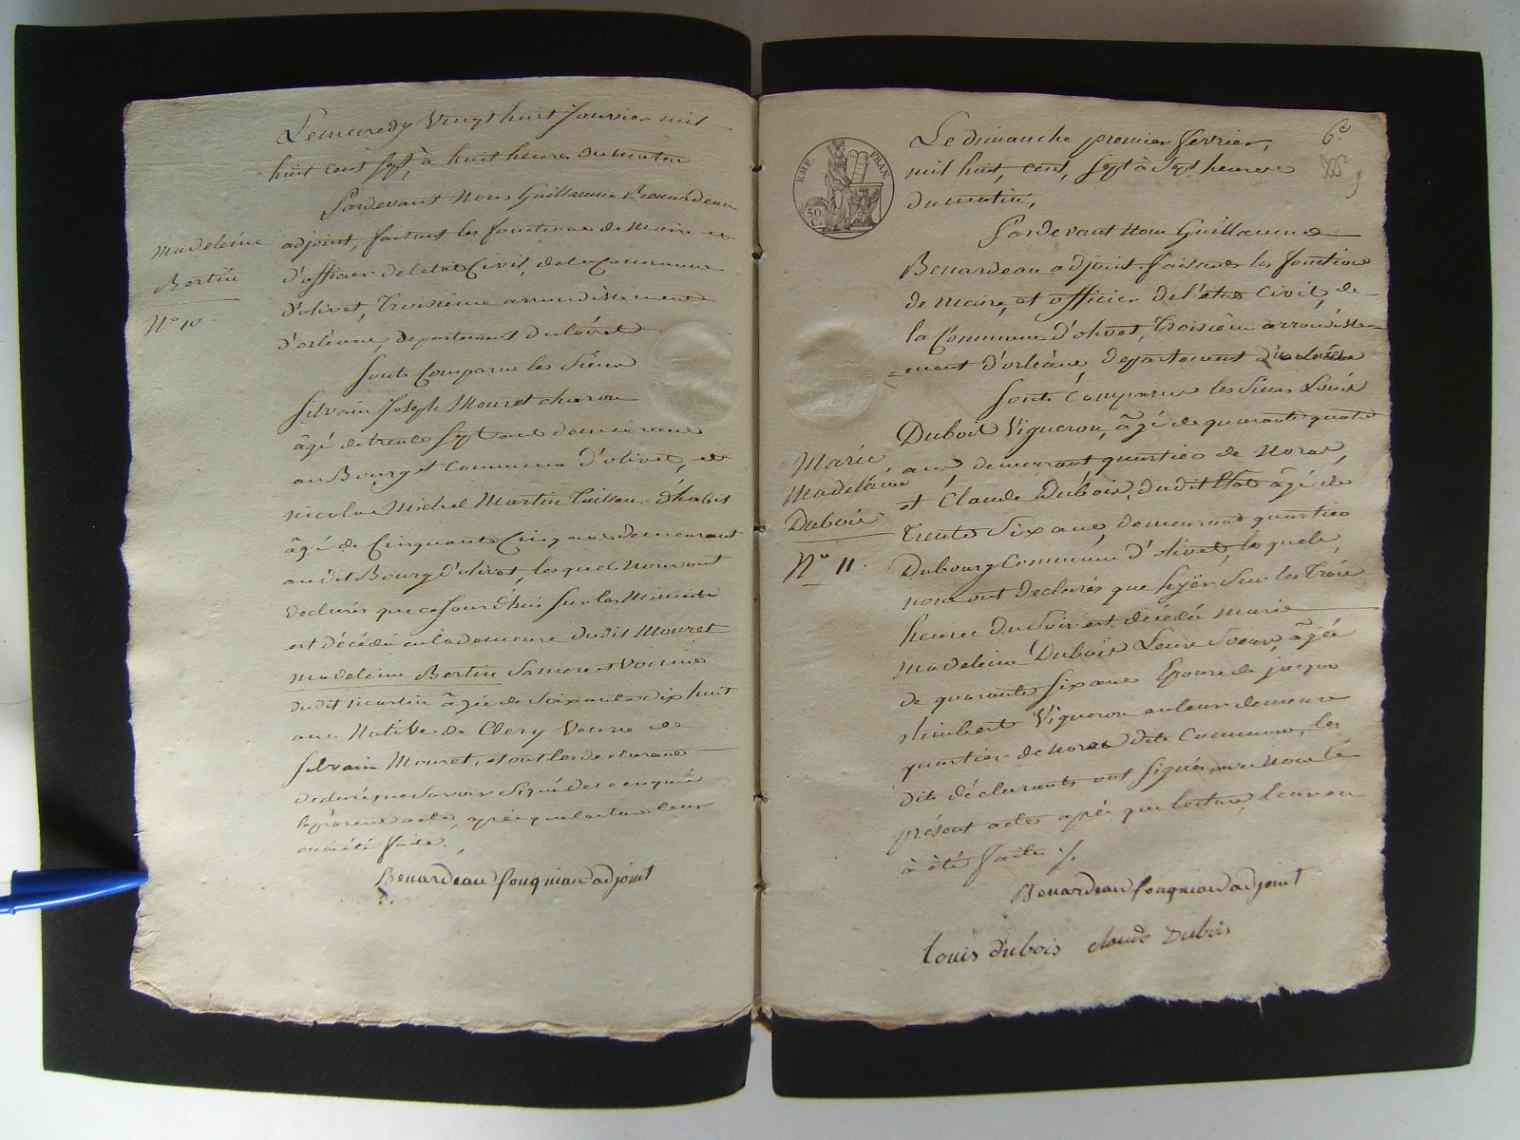 Le mercredy Vingt huit Janvier mil
huit cent Sept, à huit heures du matin
Pardevant Nous Guillaume Benardeau
adjoint, faisant les fonctions de Maire et
d'officier de l'état Civil, de la Commune
d'olivet, Troisième arrondissement
d'orléans, departement du loiret
Sont Comparus les Sieurs
Silvain Joseph Mouret charon
âgé de trente Sept ans demeurant
au Bourg et Commune d'olivet, et
nicolas Michel Martin Tailleur d'habits
âgé de Cinquante Cinq ans demeurant
au dit Bourg d'olivet, lesquels nous ont
declarés que ce Jourd'hui Sur les
est décédée en la demeure dudit Mouret
madeleine Bertin Sa mere et Voisine
dudit martin âgée de Soixante dix huit
ans Native de Clery Veuve de
Silvain Mouret, et ont les declarans
declaré ne Savoir Signé de ce enquis
le présent acte, après que lecture leur
en a été faite.
Benardeau fougniau adjoint
madeleine
Bertin
N° 10
EMP. FRAN.
50
C.
6e
Le dimanche premier fevrier,
mil huit, cent, Sept à Sept heures
du matin,
Pardevant Nous Guillaume
Benardeau adjoint faisant les fonctions
de maire, et officier de l'état Civil, de
la Commune d'olivet, Troisième arrondisse=
=ment d'orléans, departement du loiret
Sont Comparus les Sieurs Louis
Dubois Vigneron, âgé de quarante quatre
ans, demeurant quartier de Noras,
et Claude Dubois, dudit Etat âgé de
trente Six ans, demeurant quartier
Dubourg Commune d'olivet, lesquels,
nous ont declarés que hyër Sur les Trois
heures du Soir est décédée marie
madeleine Dubois Leure Soeur, âgée
de quarante six ans Epouse de jacque
Vigneron en leur demeure
quartier de noras dite Commune, les
dits déclarants ont Signés avec Nous le
présent acte après que lecture, leur en
à été faite ./.
Benardeau fougniau adjoint
Louis Dubois claude Dubois
Marie
Madeleine
Dubois
N° 11.